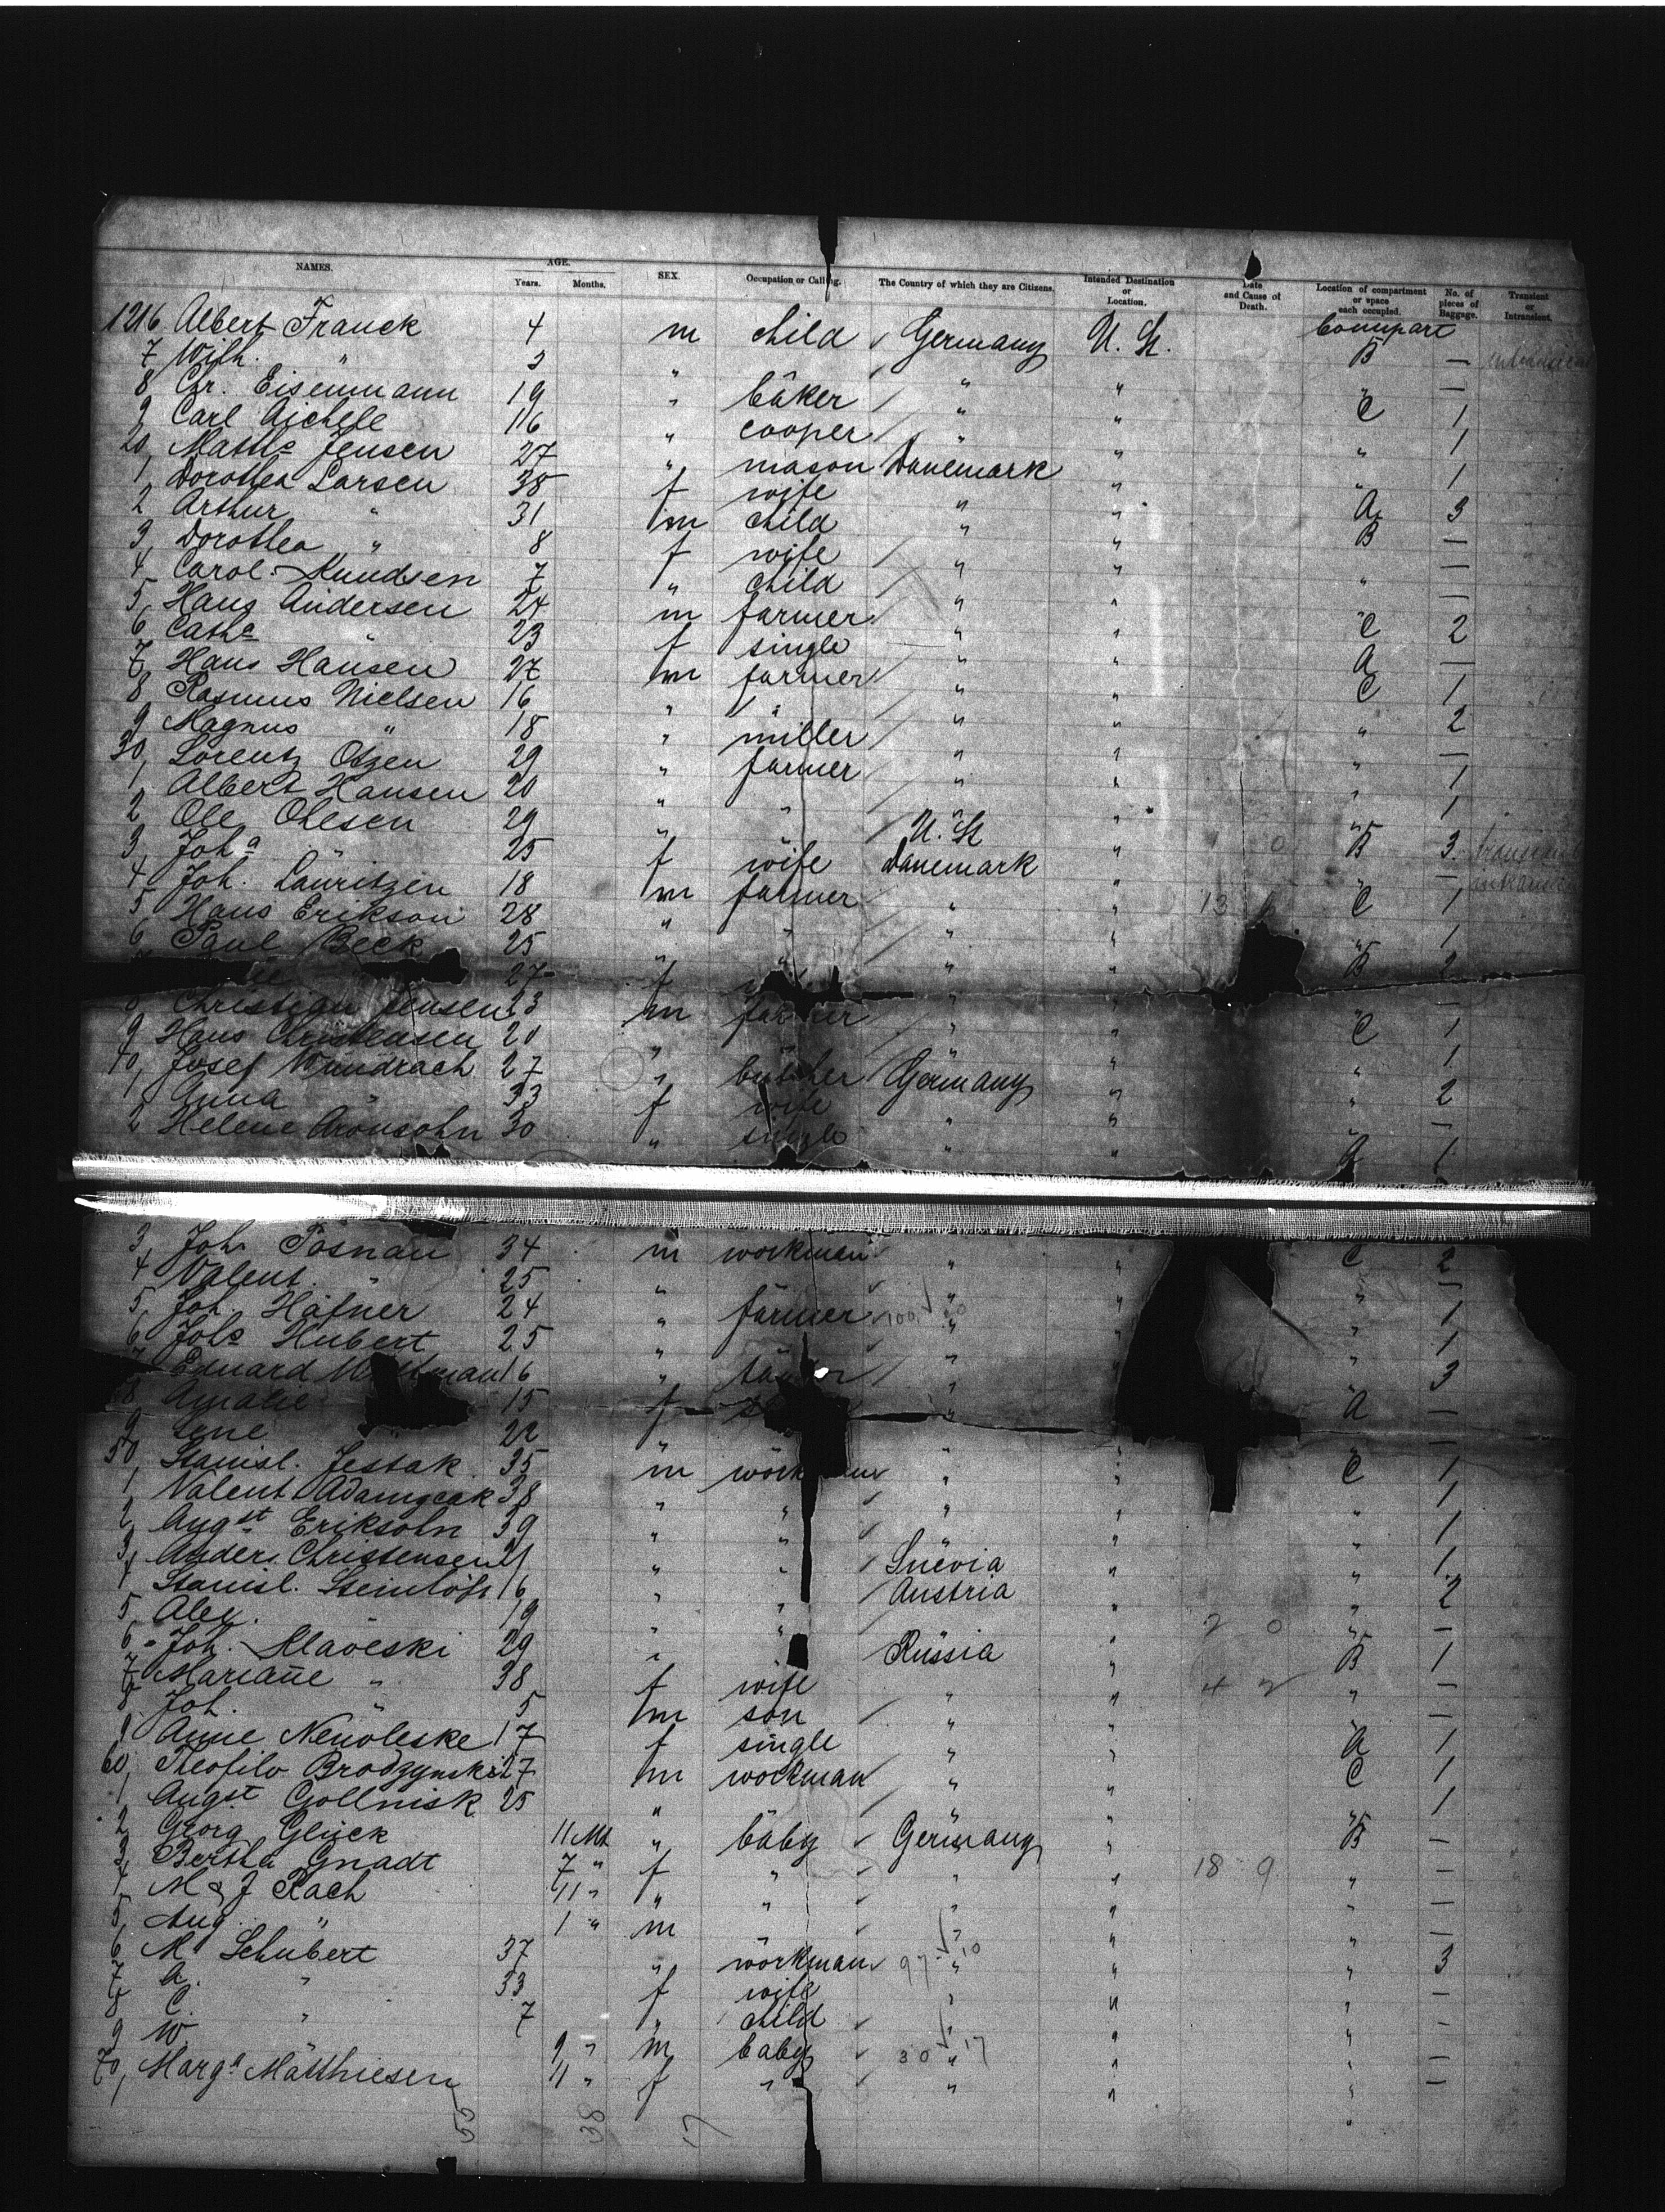 NAMES. AGE. Years. Months. SEX. Occupation or Calling. The Country of which they are Citizens. Intended Destination or Location. Date and Cause of Death. Location of compartment or space each occupied. No. of pieces of Baggage. Transient or Intransient.
1216 Albert Franck 4 m child Germany U. St. Compart
7 Wilh. " " " " B —
8 Chr. Eisenmann 19 " bäker " " " —
9 Carl Aichele 16 " cooper " " C 1
20, Matths Jensen 27 " mason Danemark " " 1
1, Dorothea Larsen 38 f wife " " " 1
2 Arthur " 31 m child " " A 3
3, Dorothea " 8 f wife " " B —
4, Carol. Knudsen 7 " child " " " —
5, Hans Andersen 24 m farmer " " " —
6, Catha " 23 f single " " C 2
7, Hans Hansen 27 m farmer " " A —
8 Rasmus Nielsen 16 " " " " C 1
9 Magnus " 18 " miller " " " 2
30, Lorentz Otzen 29 " farmer " " " —
1, Albert Hansen 20 " " " " " 1
2, Ole Olesen 29 " " U. St " " 1
3, Joha " 25 f wife Danemark " B 3
4, Joh. Lauritzen 18 m farmer " " " —
5 Hans Erikson 28 " " " " C 1
6 Paul Beck 25 " " " " " 1
27 f " " B 2
8 Christian Jensen 23 m farmer " " " —
9 Hans Christensen 20 " " " " C 1
40, Josef Wundrach 27 " butcher Germany " " 1
1, Anna " 33 f wife " " " 2
2 Helene Aronsohn 30 " single " " " —
A 1
3, Joh. Posnau 34 m workman " " C 2
4 Valent. " 25 " " " " " —
5, Joh. Häfner 24 " farmer " " " 1
6, Johs Hubert 25 " " " " " 1
7 Eduard 16 " " " " 3
8 Amalie 15 f " A —
9 Lene " 22 " " " —
50, Stanisl. Jestak 35 m workman " " C 1
1, Valent Adamczak 38 " " " " " 1
2, Augst Eriksohn 39 " " " " " 1
3, Anders Christensen 21 " " Suevia " " 1
4 Stanisl. 16 " " Austria " " 2
5, Alex. 19 " " " " —
6 Joh. Slaveski 29 " " Russia " B 1
7, Marianne " 38 f wife " " " —
8 Joh. " 5 m son " " " —
9 Anne Nevoleske 17 f single " " A 1
60, Theofilo Brodzynski 27 m workman " " C 1
1, Augst Gollnisk 25 " " " " " 1
2, Georg Glück 11 Mt " baby Germany " B —
3, Bertha Gnadt 7 " f " " " " —
4 M & J Rach 11 " " " " " " —
5, Aug. " 1 " m " " " —
6, M Schubert 37 " workman " " " 3
7, A. " 33 f wife " " " —
8 C. " 7 " child " " " —
9 W. 9 " m baby " " " —
70, Marga Matthiesen 11 " f " " " "
55 38 17